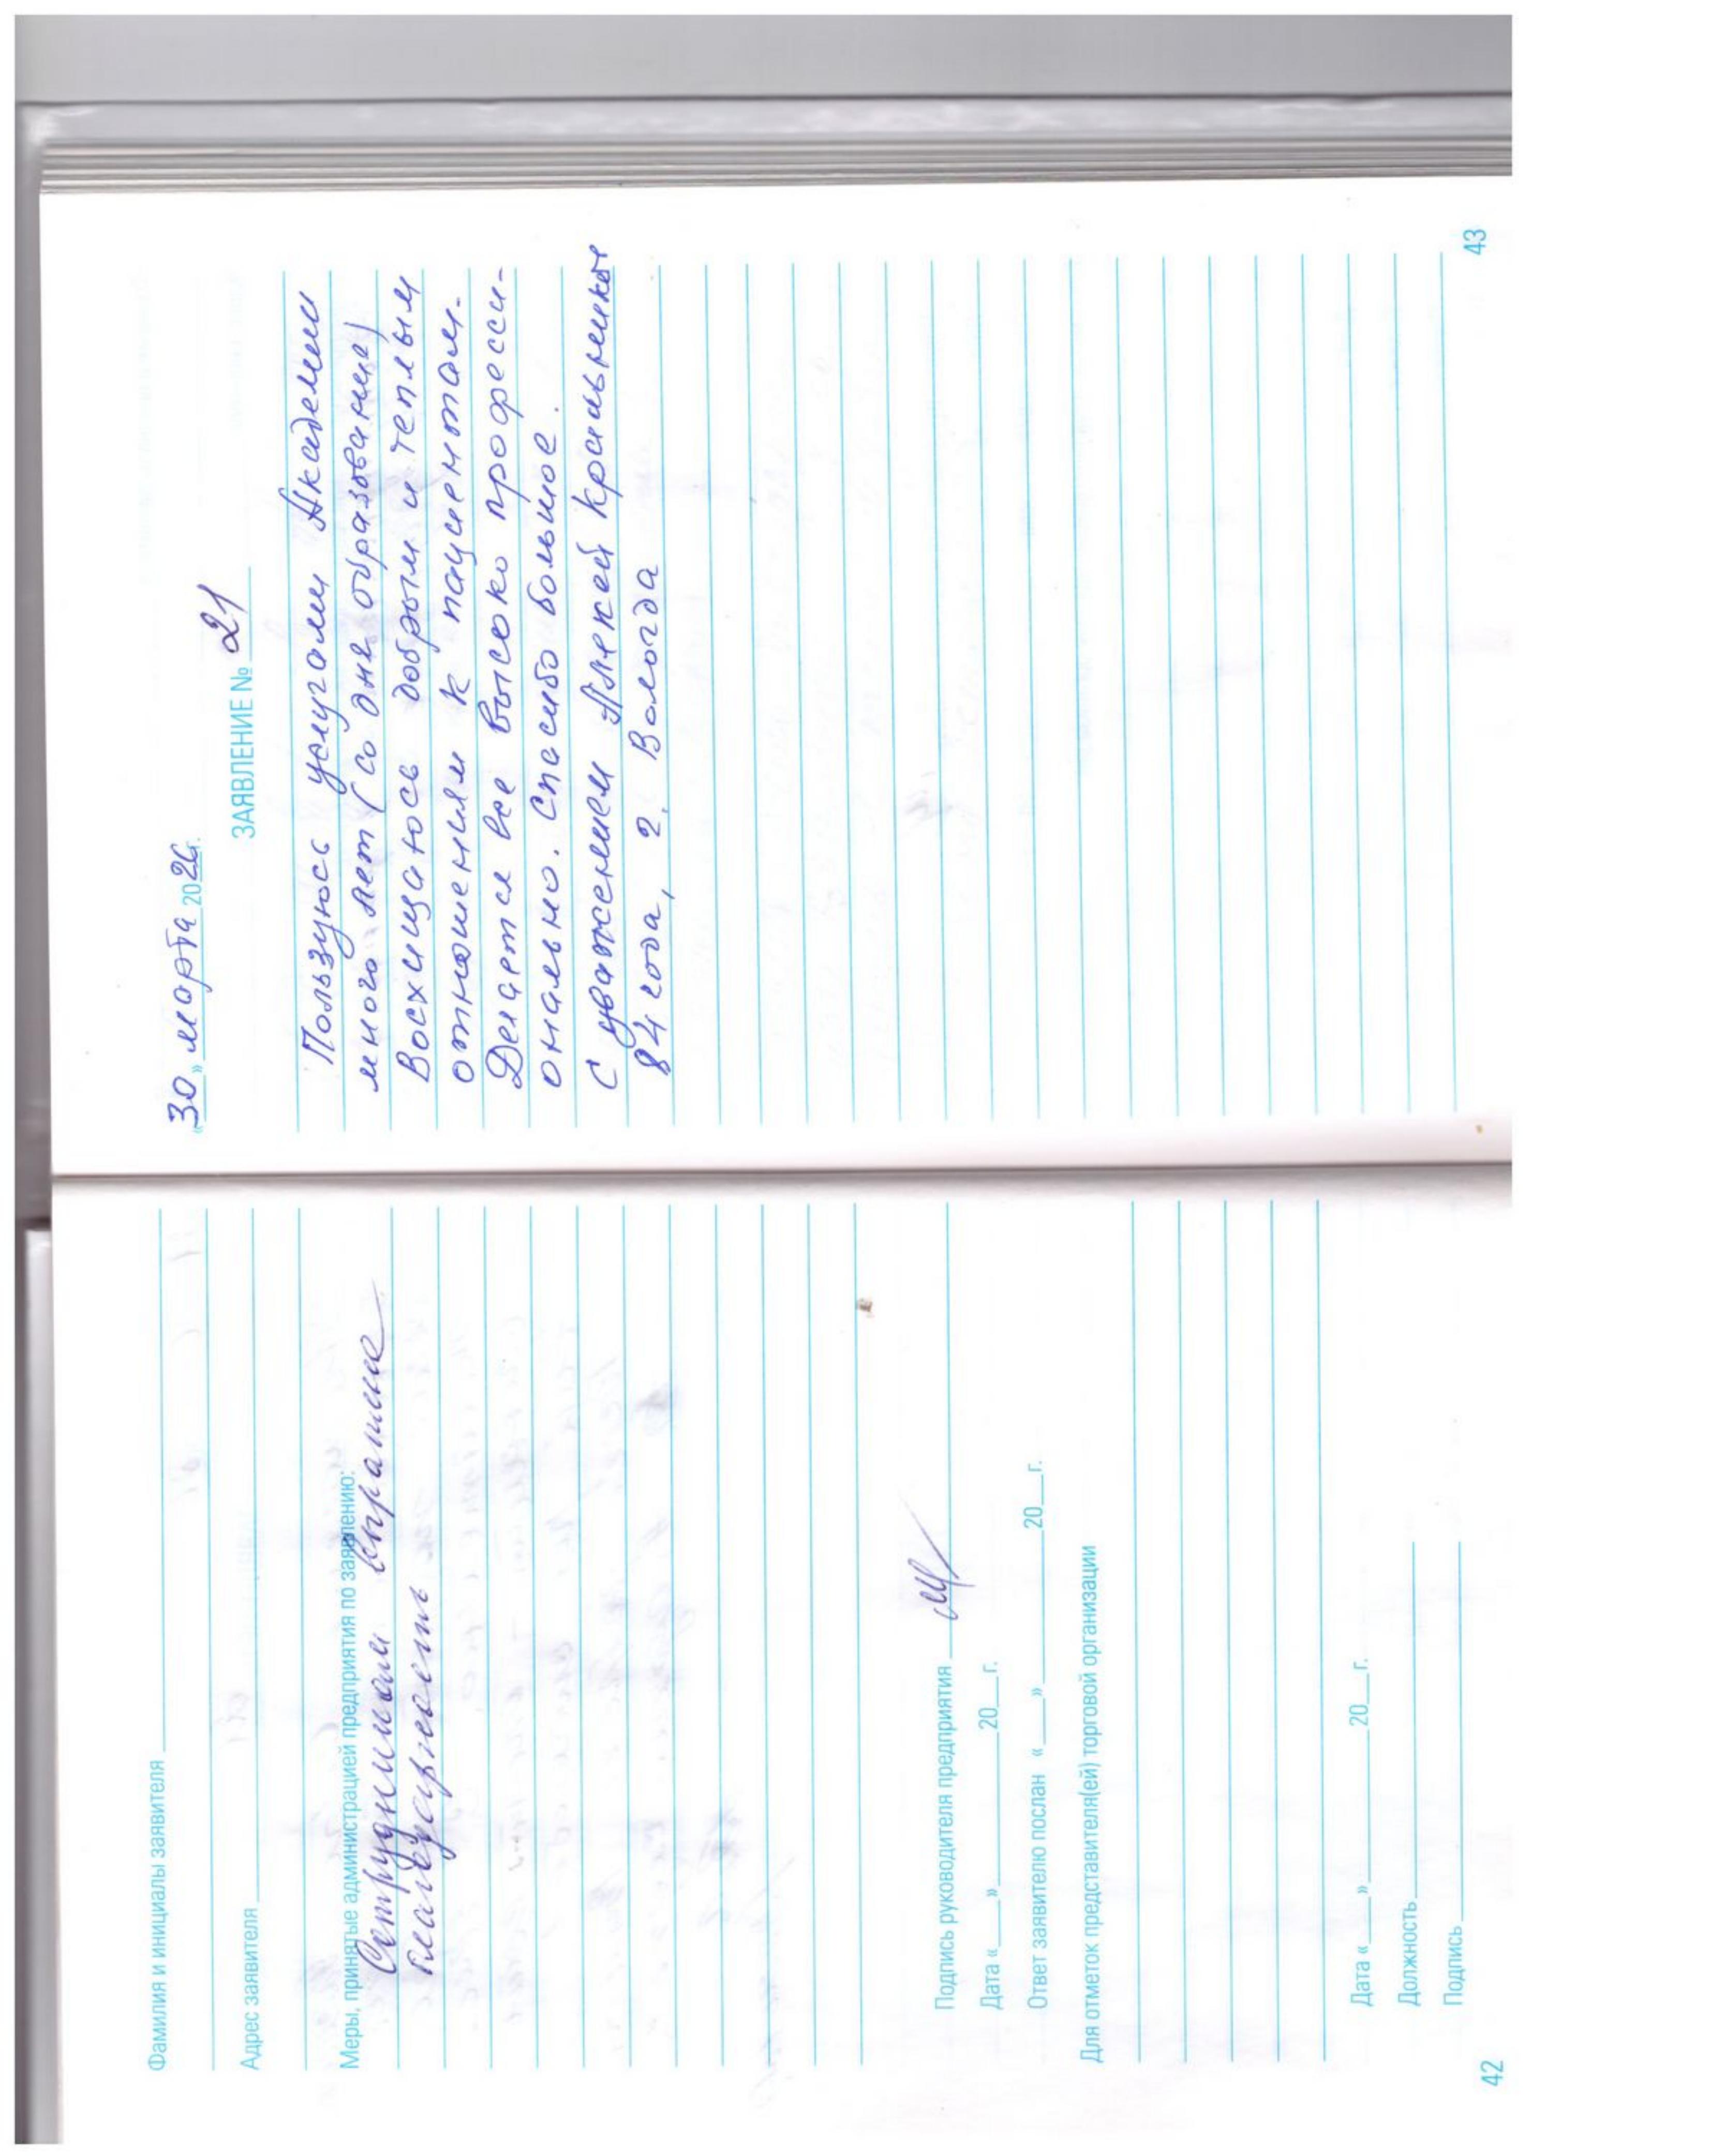 Фамилия и инициалы заявителя
Адрес заявителя
Меры, принятые администрацией предприятия по заявлению:
Сотрудникам
благодарность
Подпись руководителя предприятия
Дата «___»________20__г.
Ответ заявителю послан «___»________20__г.
Для отметок представителя(ей) торговой организации
Дата «___»________20__г.
Должность
Подпись
42
«30» марта 20 г.
ЗАЯВЛЕНИЕ № 21
Пользуюсь услугами Академии
много лет (со дня образования)
Восхищаюсь добрым и теплым
отношениям к пациентам.
Делается все высоко професси-
онально. Спасибо большое.
С уважением
84 года, г. Вологда
43